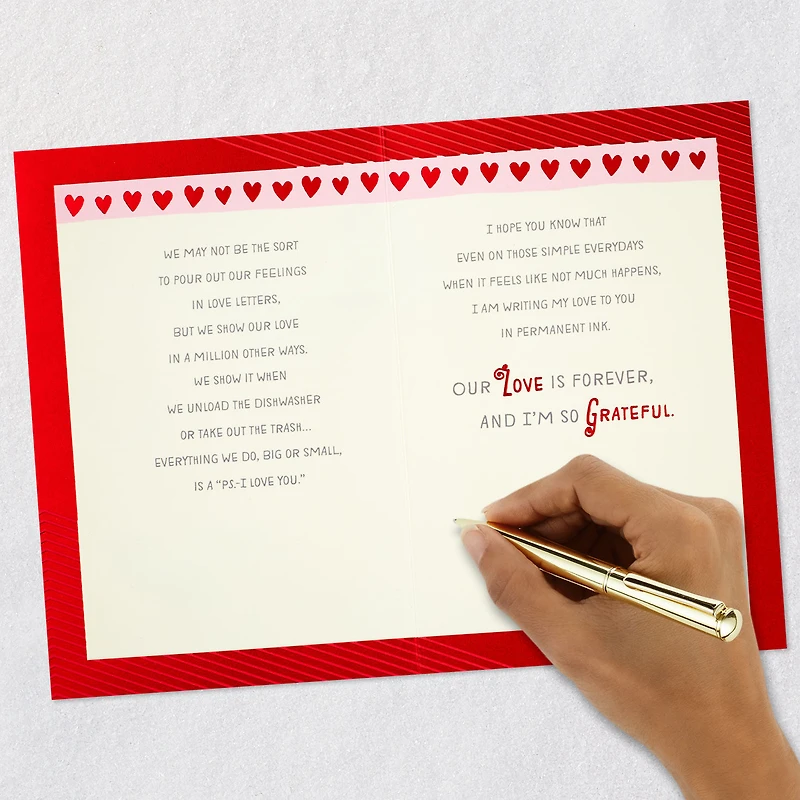 WE MAY NOT BE THE SORT
TO POUR OUT OUR FEELINGS
IN LOVE LETTERS,
BUT WE SHOW OUR LOVE
IN A MILLION OTHER WAYS.
WE SHOW IT WHEN
WE UNLOAD THE DISHWASHER
OR TAKE OUT THE TRASH...
EVERYTHING WE DO, BIG OR SMALL,
IS A "P.S.–I LOVE YOU."
I HOPE YOU KNOW THAT
EVEN ON THOSE SIMPLE EVERYDAYS
WHEN IT FEELS LIKE NOT MUCH HAPPENS,
I AM WRITING MY LOVE TO YOU
IN PERMANENT INK.
OUR LOVE IS FOREVER,
AND I'M SO GRATEFUL.